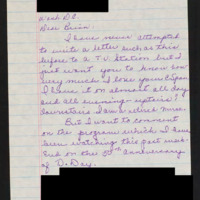 Wash. DC.
Dear Brian
I have never attempted
to write a letter such as this
before to a T.V. Station but I
just want you to know how
very much I love your C-Span
I have it on almost all day
and all evening
I am a retired nurse.
But I want to comment
on the program which I have
been watching this past week
End on the 50th anniversary
of D. Day.